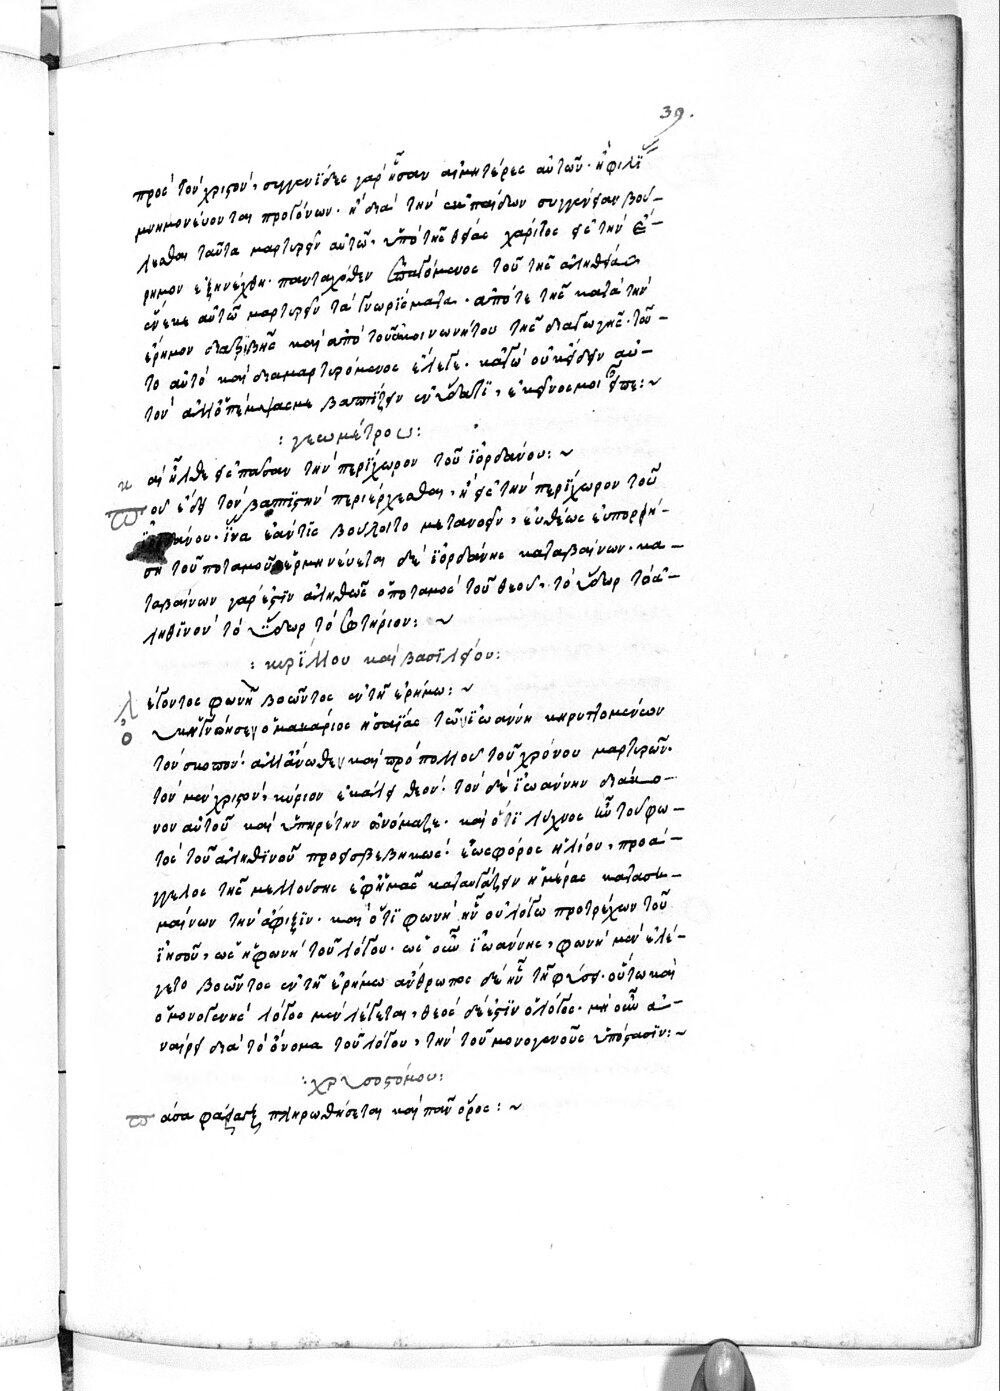 39.
πρὸς τὸν χριστόν, συγγενίδες γὰρ ἦσαν αἱ μητέρες αὐτῶν. ἢ φιλί
μνημονεύονται προγόνων. ἢ διὰ τὴν ἐκ παίδων συγγένειαν βού-
λεσθαι ταῦτα μαρτυρεῖν αὐτῷ, ὑπὸ τῆς θείας χάριτος εἰς τὴν ἔ-
ρημον ἐξηνέχθη. πανταχόθεν τοῦ τῆς ἀληθείας
ἕνεκε αὐτῷ μαρτυρεῖν τὰ γνωρίσματα. ἀπό τε τῆς κατὰ τὴν
ἔρημον διατριβῆς καὶ ἀπὸ τοῦ ἀκοινωνήτου τῆς διαγωγῆς. τοῦ-
το αὐτὸ καὶ διαμαρτυρόμενος ἔλεγε. κἀγὼ οὐκ ᾔδειν αὐ-
τὸν ἀλλ' ὁ πέμψας με βαπτίζειν ἐν ὕδατι, ἐκεῖνος μοι εἶπε:~
: γεωμέτρου :
κ αὶ ἦλθε εἰς πᾶσαν τὴν περίχωρον τοῦ ἰορδάνου:~
π οῦ ἔδει τὸν βαπτιστὴν περιέρχεσθαι, ἢ εἰς τὴν περίχωρον τοῦ
ἰορδάνου. ἵνα ἐάν τις βούλοιτο μετανοεῖν, εὐθέως εὐπορήσῃ
τοῦ ποταμοῦ ἑρμηνεύεται δὲ ἰορδάνης καταβαίνων. κα-
ταβαίνων γάρ ἐστιν ἀληθῶς ὁ ποταμὸς τοῦ θεοῦ, τὸ ὕδωρ τὸ ἀ-
ληθινὸν τὸ ὕδωρ τὸ σωτήριον:~
: κυρίλλου καὶ βασιλείου:
λ έγοντος φωνὴ βοῶντος ἐν τῇ ἐρήμῳ:~
ο ὐκ ἠγνόησεν ὁ μακάριος ἡσαΐας τῶν ἰωάννῃ κηρυττομένων
τὸν σκοπόν. ἀλλ' ἄνωθεν καὶ πρὸ πολλοῦ τοῦ χρόνου μαρτυρῶν.
τὸν μὲν χριστόν, κύριον ἐκάλει θεόν. τὸν δὲ ἰωάννην διάκο-
νον αὐτοῦ καὶ ὑπηρέτην ὠνόμαζε. καὶ ὅτι λύχνος ἦν τοῦ φω-
τὸς τοῦ ἀληθινοῦ προεισβεβηκώς. ἑωσφόρος ἡλίου, προά-
γγελος τῆς μελλούσης ἐφ' ἡμᾶς καταυγάζειν ἡμέρας κατασημαίνων
τὴν ἄφιξιν. καὶ ὅτι φωνὴ ἦν οὐ λόγῳ προτρέχων τοῦ
ἰησοῦ, ὡς ἡ φωνὴ τοῦ λόγου. ὡς οὖν ἰωάννης, φωνὴ μὲν ἐλέ-
γετο βοῶντος ἐν τῇ ἐρήμῳ ἄνθρωπος δὲ ἦν τῇ φύσει. οὕτω καὶ
ὁ μονογενὴς λόγος μὲν λέγεται, θεὸς δέ ἐστιν ὁ λόγος. μὴ οὖν ἀ-
ναίρει διὰ τὸ ὄνομα τοῦ λόγου, τὴν τοῦ μονογενοῦς ὑπόστασιν:~
: χρυσοστόμου:
π ᾶσα φάραγξ πληρωθήσεται καὶ πᾶν ὄρος:~